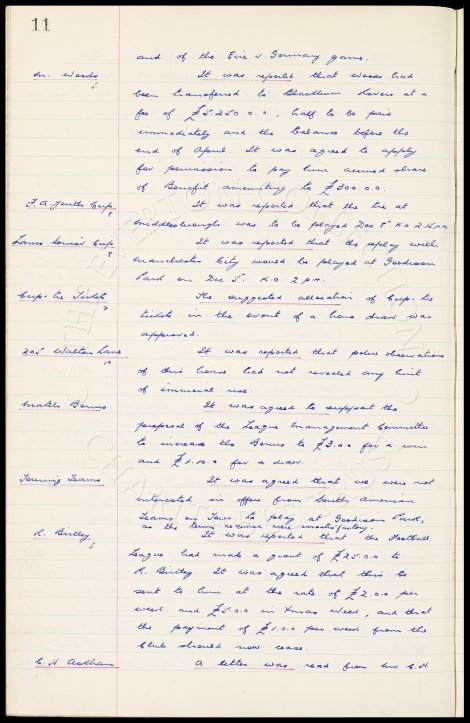 11
and of the Eire v Germany game.
M. Woods
It was reported that Woods had
been transferred to Blackburn Rovers at a
fee of £5.250.0.0, half to be paid
immediately and the balance before the
end of April. It was agreed to apply
for permission to pay him accrued share
of Benefit amounting to £300.0.0.
F.A. Youth Cup
It was reported that the tie at
Middlesbrough was to be played Dec 8. K.O. 2.15 p.m.
Lancs Senior Cup
It was reported that the replay with
Manchester City would be played at Goodison
Park on Dec 5. K.O. 2 p.m.
Cup-tie Tickets
The suggested allocation of Cup-tie
tickets in the event of a home draw was
approved.
205 Walton Lane
It was reported that police observations
of this house had not revealed any hint
of immoral use.
Match Bonus
It was agreed to support the
proposal of the League Management Committee
to increase the Bonus to £3.0.0 for a win
and £1.10.0 for a draw.
Touring Teams
It was agreed that we were not
interested in offers from South American
Teams on Tour to play at Goodison Park,
as the terms required were unsatisfactory.
R. Birtley
It was reported that the Football
League had made a grant of £25.0.0 to
R. Birtley. It was agreed that this be
sent to him at the rate of £2.0.0 per
week and £5.0.0 in Xmas Week, and that
the payment of £1.0.0 per week from the
Club should now cease.
C. H. Askham
A letter was read from Mr C.H